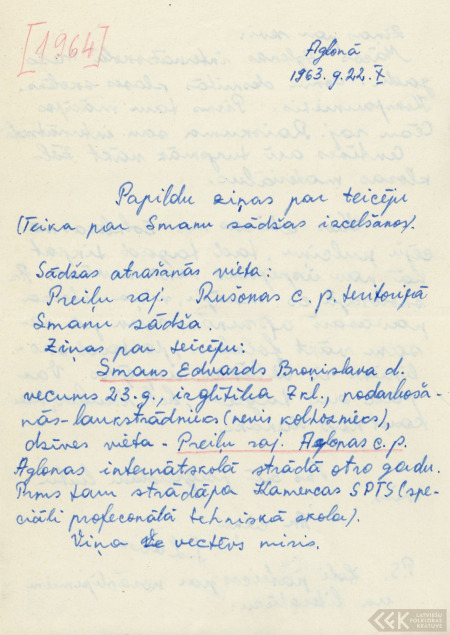 [1964]
Aglonā
1963. g. 22. X
Papildu ziņas par teicēju
(Teika par Smanu sādžas izcelšanos).
Sādžas atrašanās vieta:
Preiļu raj. Rušonas c. p. teritorijā
Smanu sādža.
Ziņas par teicēju:
Smans Edvards Broņislava d.
vecums 23. g., izglītība 7 kl., nodarboša-
nās - laukstrādnieks (nevis kolhoznieks),
dzīves vieta - Preiļu raj. Aglonas c. p.
Aglonas internātskolā strādā otro gadu.
Pirms tam strādāja Kamencas SPTS (spe-
ciāli profeconālā tehniskā skola).
Viņa vectēvs miris.
LATVIEŠU
FOLKLORAS
KRĀTUVE